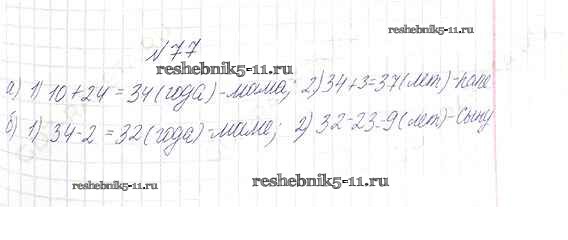 reshebnik5-11.ru
№77
reshebnik5-11.ru
а) 1) 10+24=34(года)-мама; 2) 34+3=37(лет)-папе
б) 1) 34-2=32(года)-маме; 2) 32-23=9(лет)-сыну
reshebnik5-11.ru
reshebnik5-11.ru